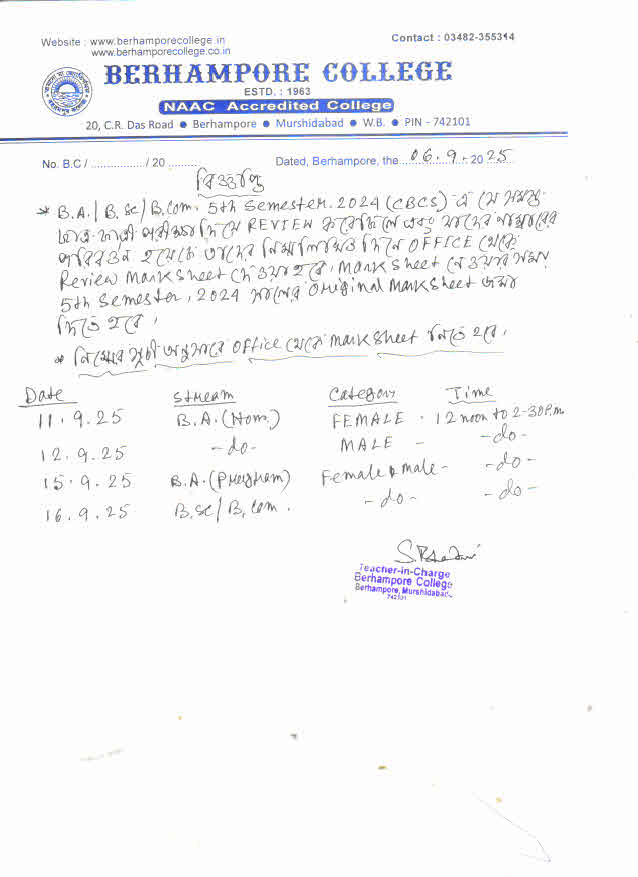 Website : www.berhamporecollege.in
www.berhamporecollege.co.in
Contact : 03482-355314
BERHAMPORE COLLEGE
ESTD. : 1963
NAAC Accredited College
20, C.R. Das Road ● Berhampore ● Murshidabad ● W.B. ● PIN - 742101
No. B.C / ................. / 20 .........
Dated, Berhampore, the 06.9.2025
বিজ্ঞপ্তি
* B.A./B.Sc/B.Com. 5th Semester. 2024 (CBCS) এ যে সমস্ত
ছাত্র-ছাত্রী পরীক্ষা দিয়ে REVIEW করেছিলে এবং যাদের নাম্বারের
পরিবর্তন হয়েছে তাদের নিম্নলিখিত দিনে OFFICE থেকে
Review Mark Sheet দেওয়া হবে। Mark Sheet নেওয়ার সময়
5th Semester, 2024 সালের Original Mark Sheet জমা
দিতে হবে।
* নিম্নের সূচী অনুসারে Office থেকে Mark Sheet নিতে হবে।
Date Stream Category Time
11.9.25 B.A.(Hons.) FEMALE - 12 noon to 2-30 P.m
12.9.25 -do- MALE - -do-
15.9.25 B.A.(Program) Female & male - -do-
16.9.25 B.Sc/B.Com. -do- -do-
Teacher-in-Charge
Berhampore College
Berhampore, Murshidabad
742101